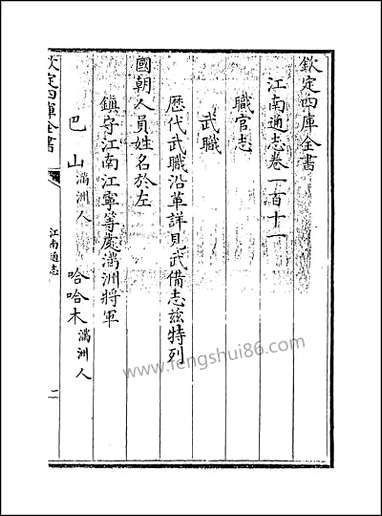 欽定四庫全書
江南通志卷一百十一
職官志
武職
歷代武職沿革詳見武備志兹特列
國朝人員姓名於左
鎮守江南江寧等處滿洲將軍
巴山滿洲人 哈哈木滿洲人
欽定四庫全書
江南通志
www.fengshui86.com